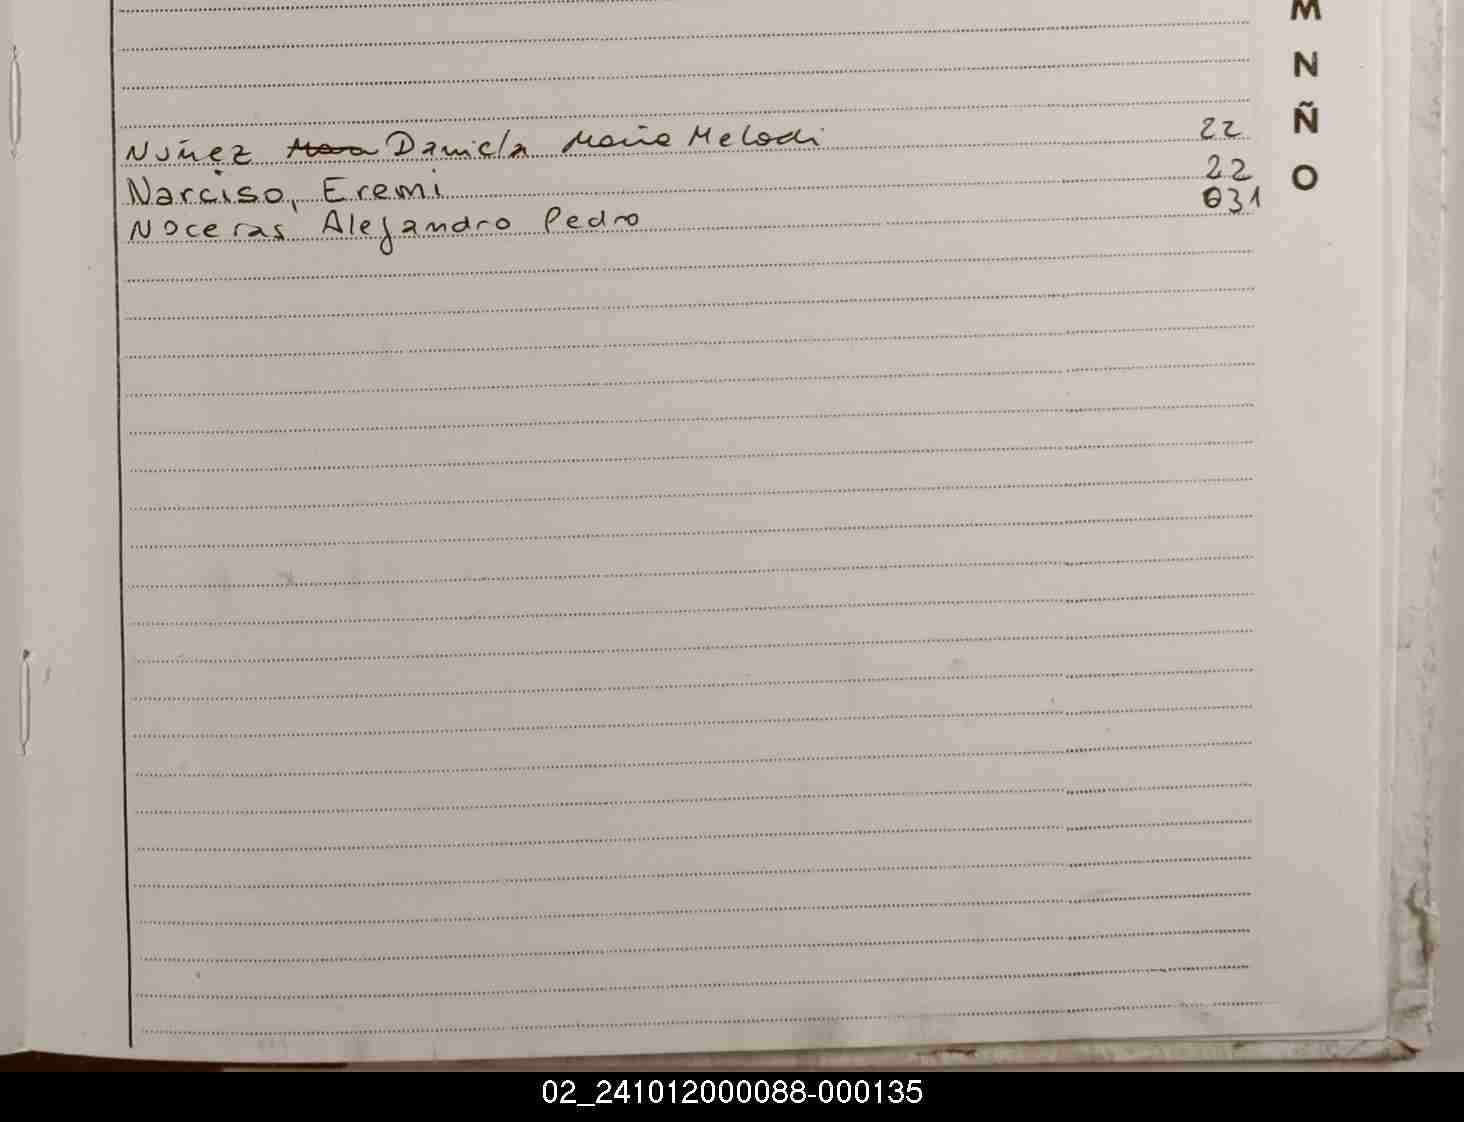 M
N
Ñ
O
Nuñez Daniela Maria Melodi 22
Narciso, Eremi 22
Noceras Alejandro Pedro 031
02_241012000088-000135